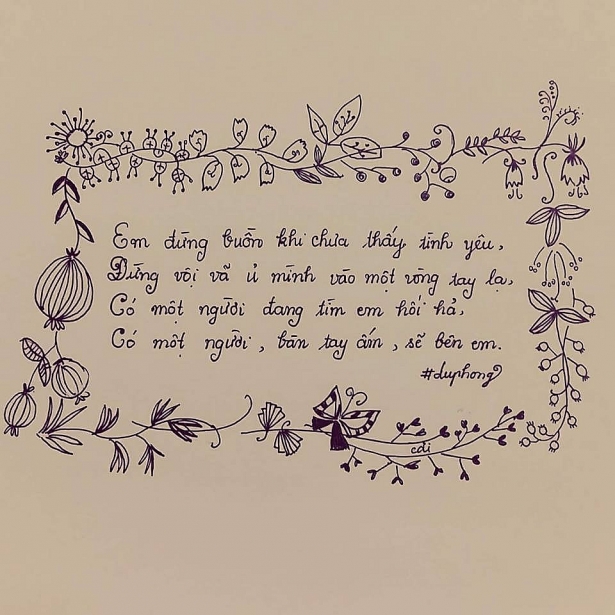 Em đừng buồn khi chưa thấy tình yêu,
Đừng vội vã ủ mình vào một vòng tay lạ,
Có một người đang tìm em hối hả,
Có một người, bàn tay ấm, sẽ bên em.
#duphong
cdi